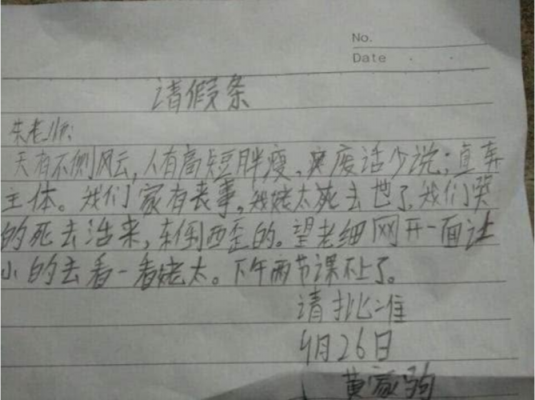 No.
Date
请假条
朱老师:
天有不侧风云,人有高短胖瘦、废话少说;直奔
主体。我们家有丧事,姥太死去也了,我们哭
的死去活来,东倒西歪的。望老细网开一面让
小的去看一看姥太。下午两节课不上了。
请批准
4月26日
黄家驹